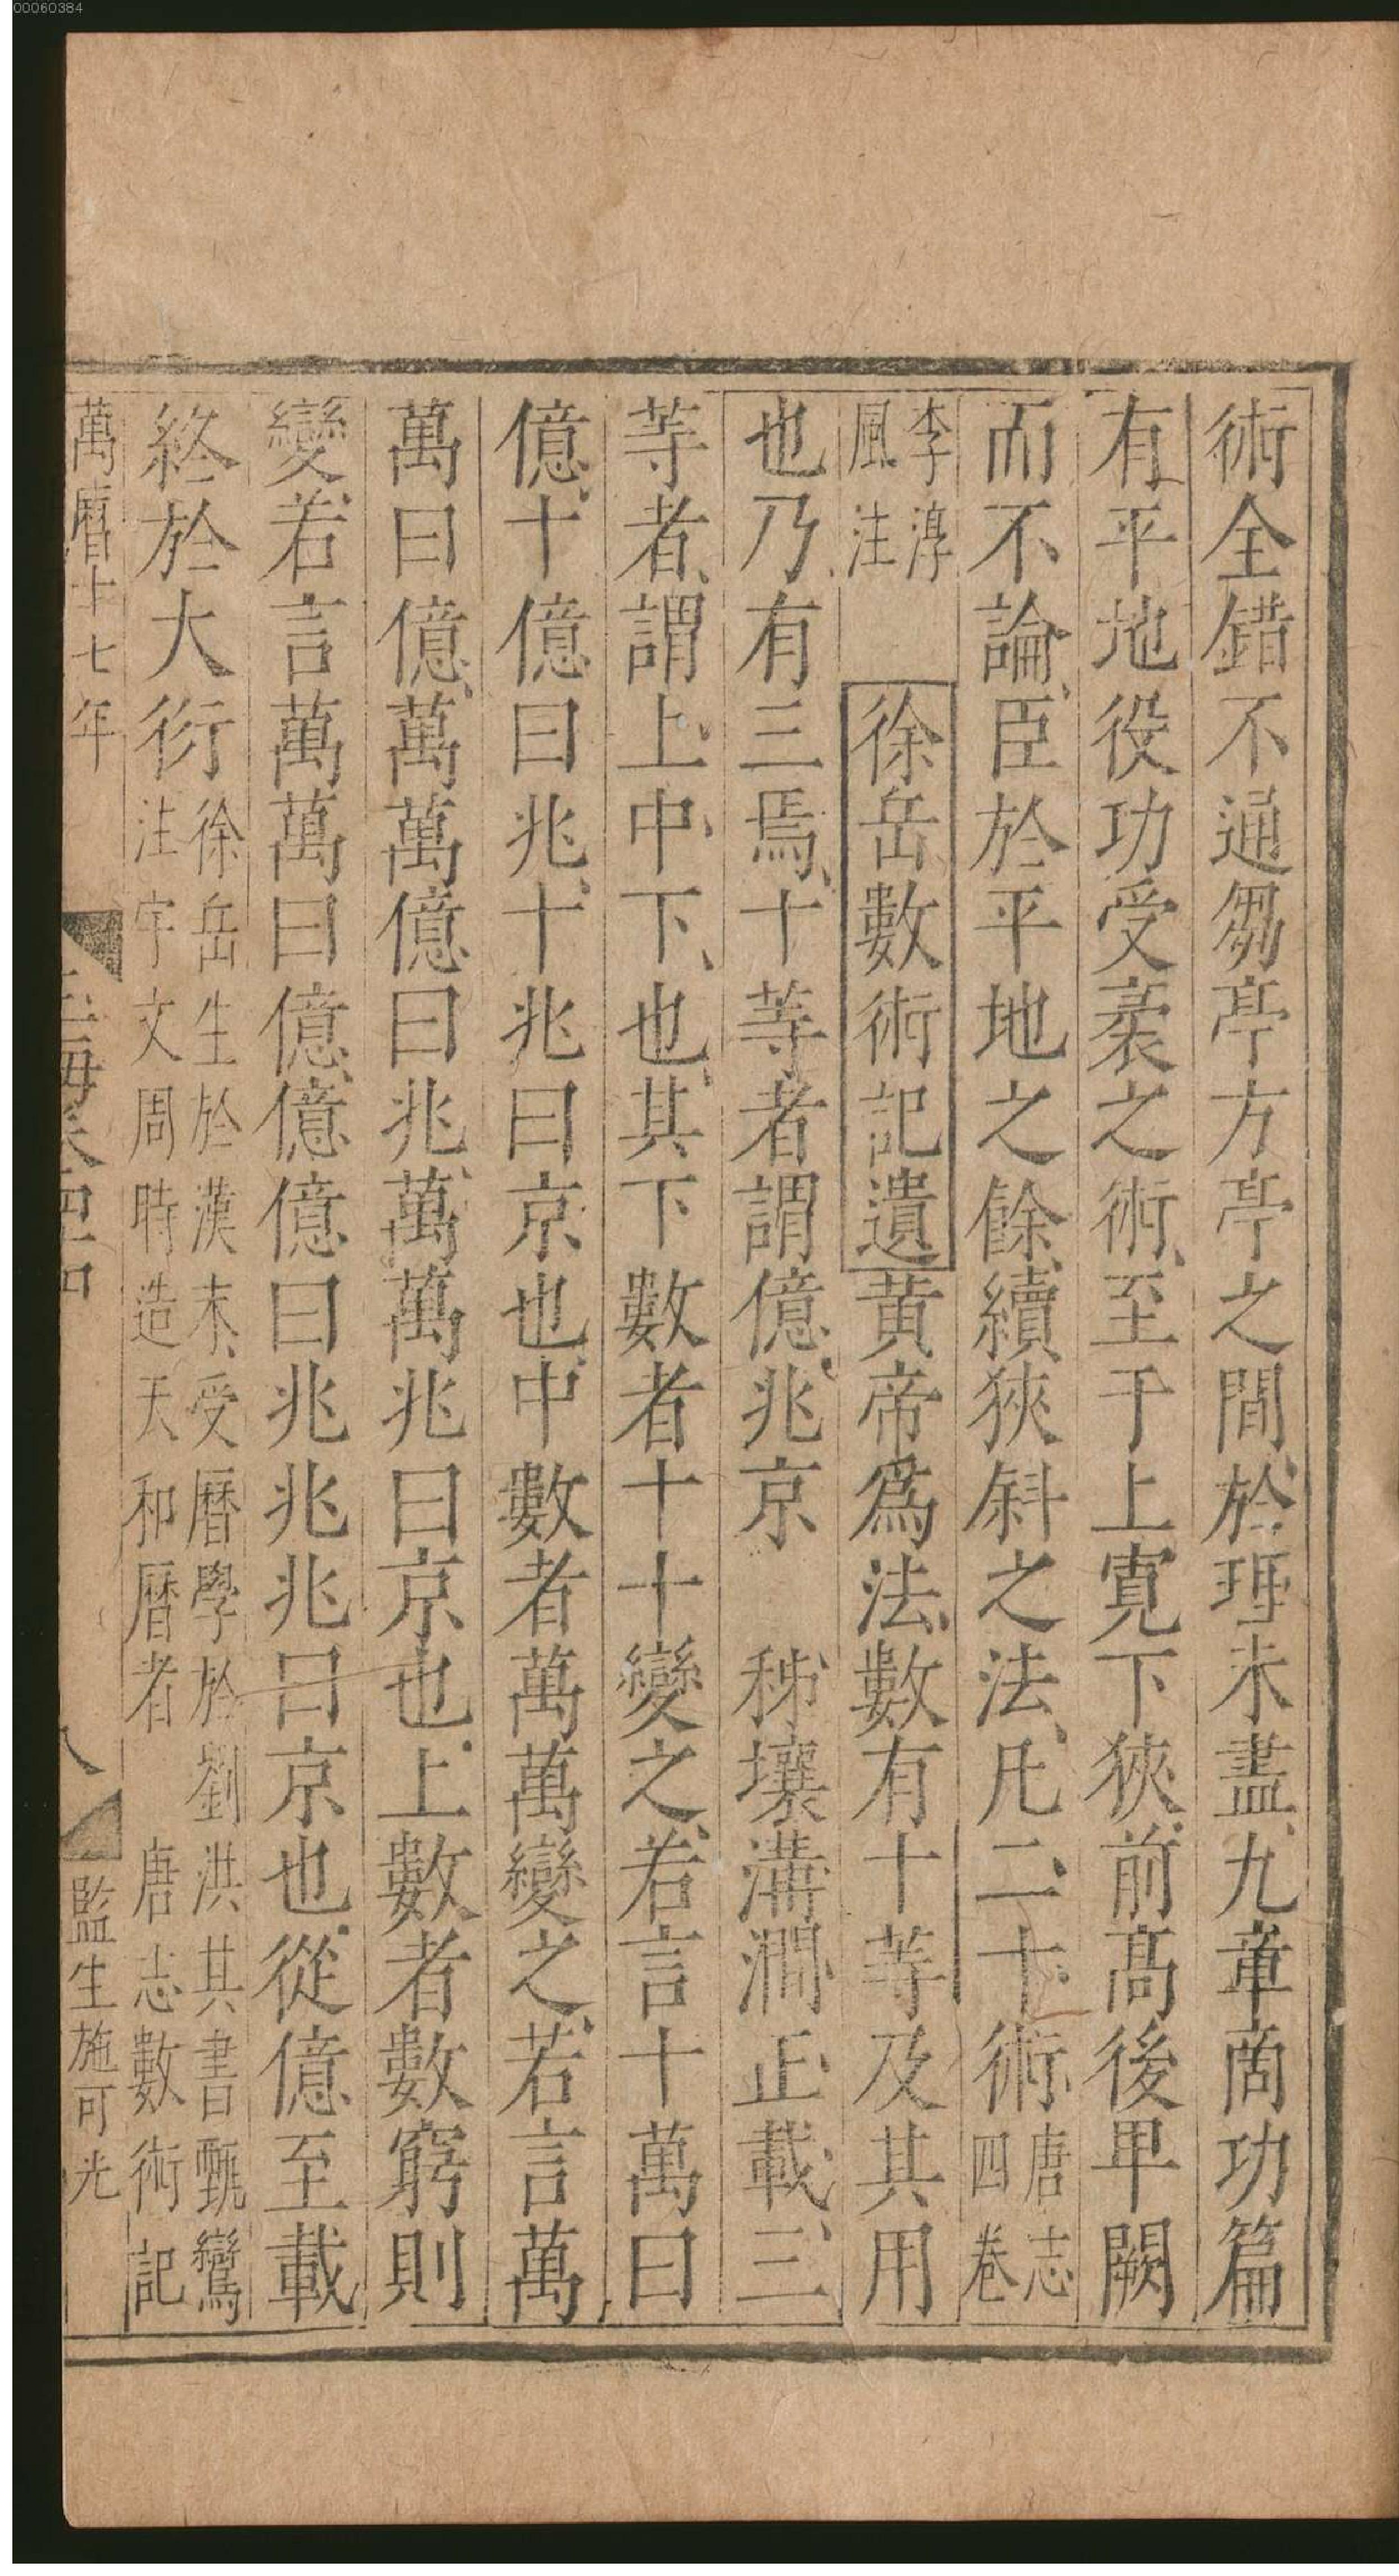 00060384
術全錯不通芻亭方亭之間於理未盡九章商功篇
有平地役功受袤之術至于上寬下狹前高後卑闕
而不論臣於平地之餘續狹斜之法凡二十術唐志四卷
李淳風注　徐岳數術記遺黃帝爲法數有十等及其用
也乃有三焉十等者謂億兆京　秭壤溝澗正載三
等者謂上中下也其下數者十十變之若言十萬曰
億十億曰兆十兆曰京也中數者萬萬變之若言萬
萬曰億萬萬億曰兆萬萬兆曰京也上數者數窮則
變若言萬萬曰億億億曰兆兆兆曰京也從億至載
終於大衍徐岳生於漢末受曆學於劉洪其書甄鸞注宇文周時造天和曆者　唐志數術記
萬曆十七年　玉海卷四十四　八　監生施可光